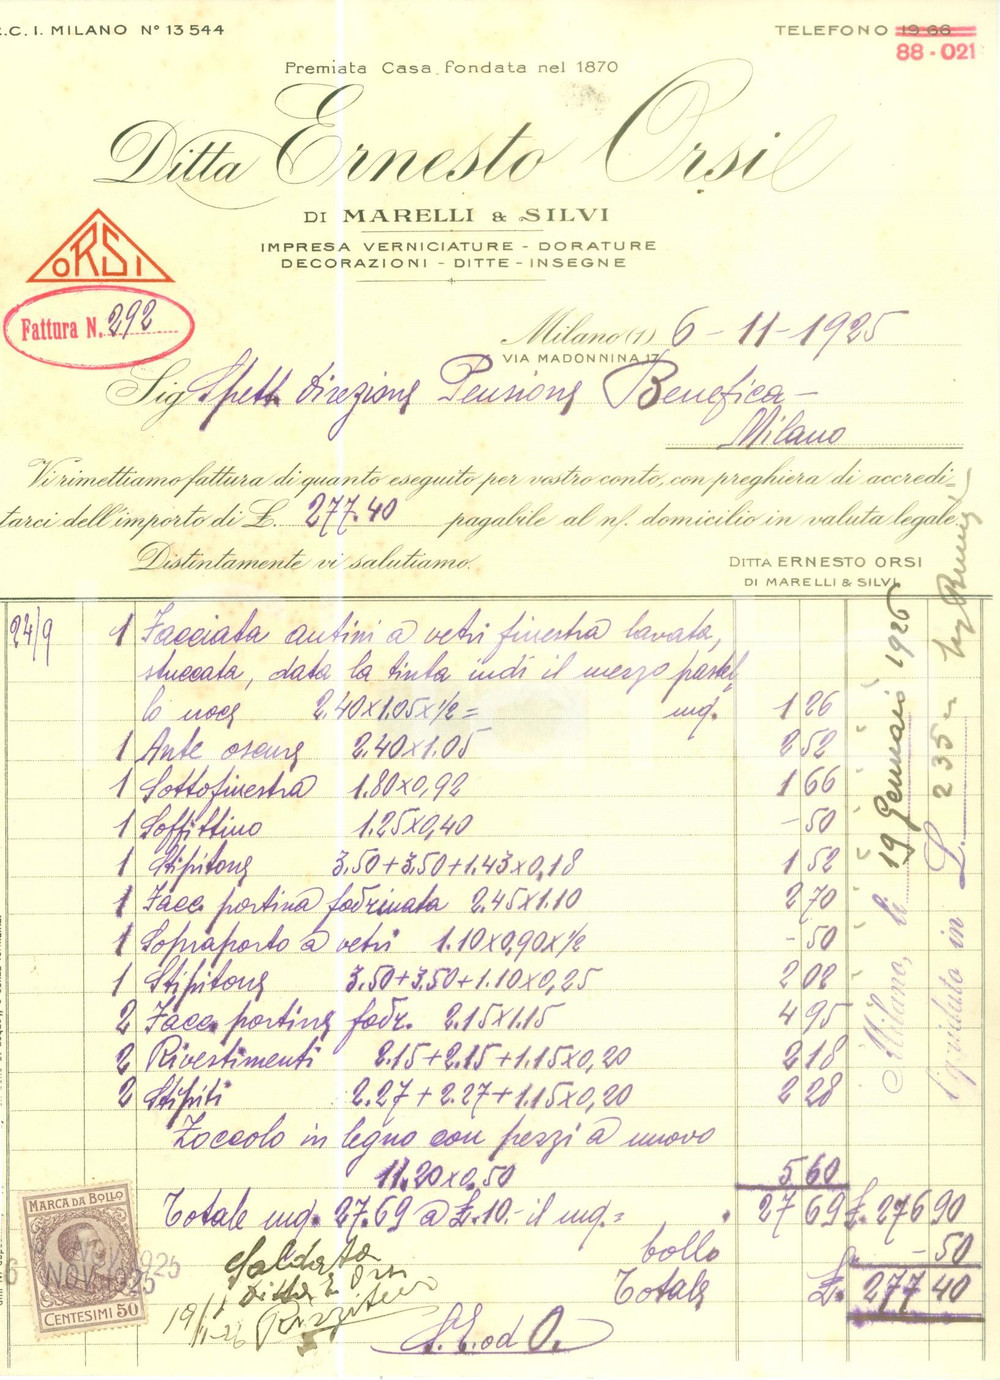 .C. I. MILANO N° 13544
TELEFONO 19 66
88-021
Premiata Casa fondata nel 1870
Ditta Ernesto Orsi
DI MARELLI & SILVI
IMPRESA VERNICIATURE - DORATURE
DECORAZIONI - DITTE - INSEGNE
ORSI
Fattura N. 292
Milano (1) 6-11-1925
VIA MADONNINA 17
Sig Spett. Direzione Pensione Benefica -
Milano
Vi rimettiamo fattura di quanto eseguito per vostro conto, con preghiera di accredi-
tarci dell'importo di £. 277.40 pagabile al n/. domicilio in valuta legale.
Distintamente vi salutiamo.
DITTA ERNESTO ORSI
DI MARELLI & SILVI
24/9 1 Facciata antini a vetri finestra lavata,
stuccata, data la tinta indi il mezzo pastel
lo noce 2.40x1.05x½= mq. 1 26
1 Ante oscure 2.40x1.05 2 52
1 Sottofinestra 1.80x0,92 1 66
1 Soffittino 1.25x0,40 -50
1 Stipitone 3.50+3.50+1.43x0,18 1 52
1 Facc. portina fodrinata 2.45x1.10 2 70
1 Sopraporto a vetri 1.10x0,90x½ -50
1 Stipitone 3.50+3.50+1.10x0,25 2 02
2 Facc. portine fodr. 2.15x1.15 4 95
2 Rivestimenti 2.15+2.15+1.15x0,20 2 18
2 Stipiti 2.27+2.27+1.15x0,20 2 28
Zoccolo in legno con pezzi a nuovo
11.20x0.50 5 60
Totale mq. 27.69 a £.10.- il mq.= 27 69 £. 276 90
bollo -50
Totale £. 277 40
MARCA DA BOLLO
NOV. 1925
CENTESIMI 50
Saldata
Ditta E. Orsi
19/1-26
Milano, li 19 Gennaio 1926
liquidato in L. 235